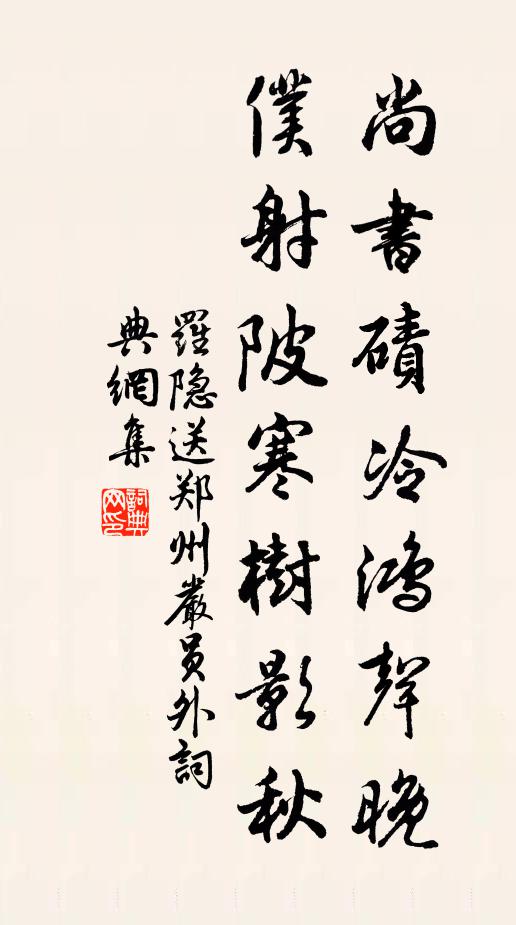 尚書磧冷鴻聲晚
僕射陂寒樹影秋
羅隐送郑州嚴员外詞
典網集
詞典网印